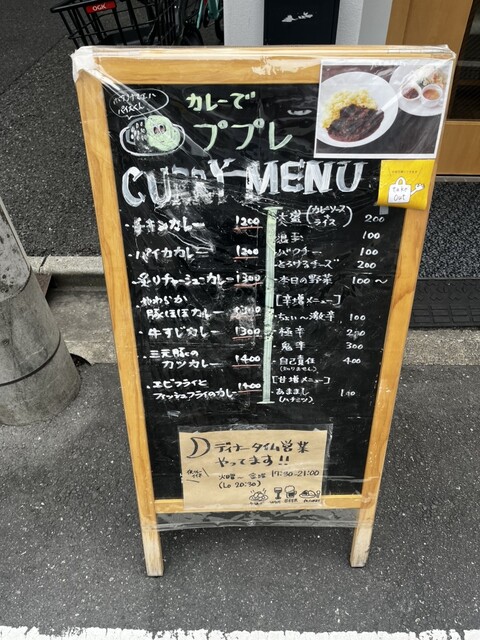 OGK
カレーで
ププレ
CURRY MENU
take out
・チキンカレー 1200
・パイカカレー 1200
・炙りチャーシューカレー 1300
・やわらか
豚ほほカレー
・牛すじカレー 1300
・三元豚の
カツカレー 1400
・エビフライと
フィッシュフライのカレー 1400
・大盛(カレーソース+ライス) 200
・温玉 100
・パクチー 100
・とろけるチーズ 200
・本日の野菜 100〜
[辛増メニュー]
・ちょい〜激辛 100
・極辛 200
・鬼辛 300
・自己責任 400
[甘増メニュー]
・あまみ
(ハチミツ)
ディナータイム営業
やってます!!
火曜〜金曜 17:30-21:00
(Lo 20:30)